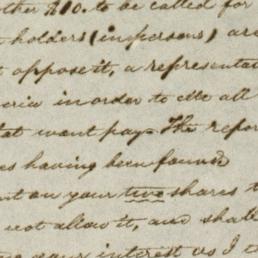 other $10. to be called for
holders (in persons) are
t oppose it, a representat
eria in order to
all
that want pay. The repor
es having been found
nt on your two shares t
not allow it, and shall
your interest as I